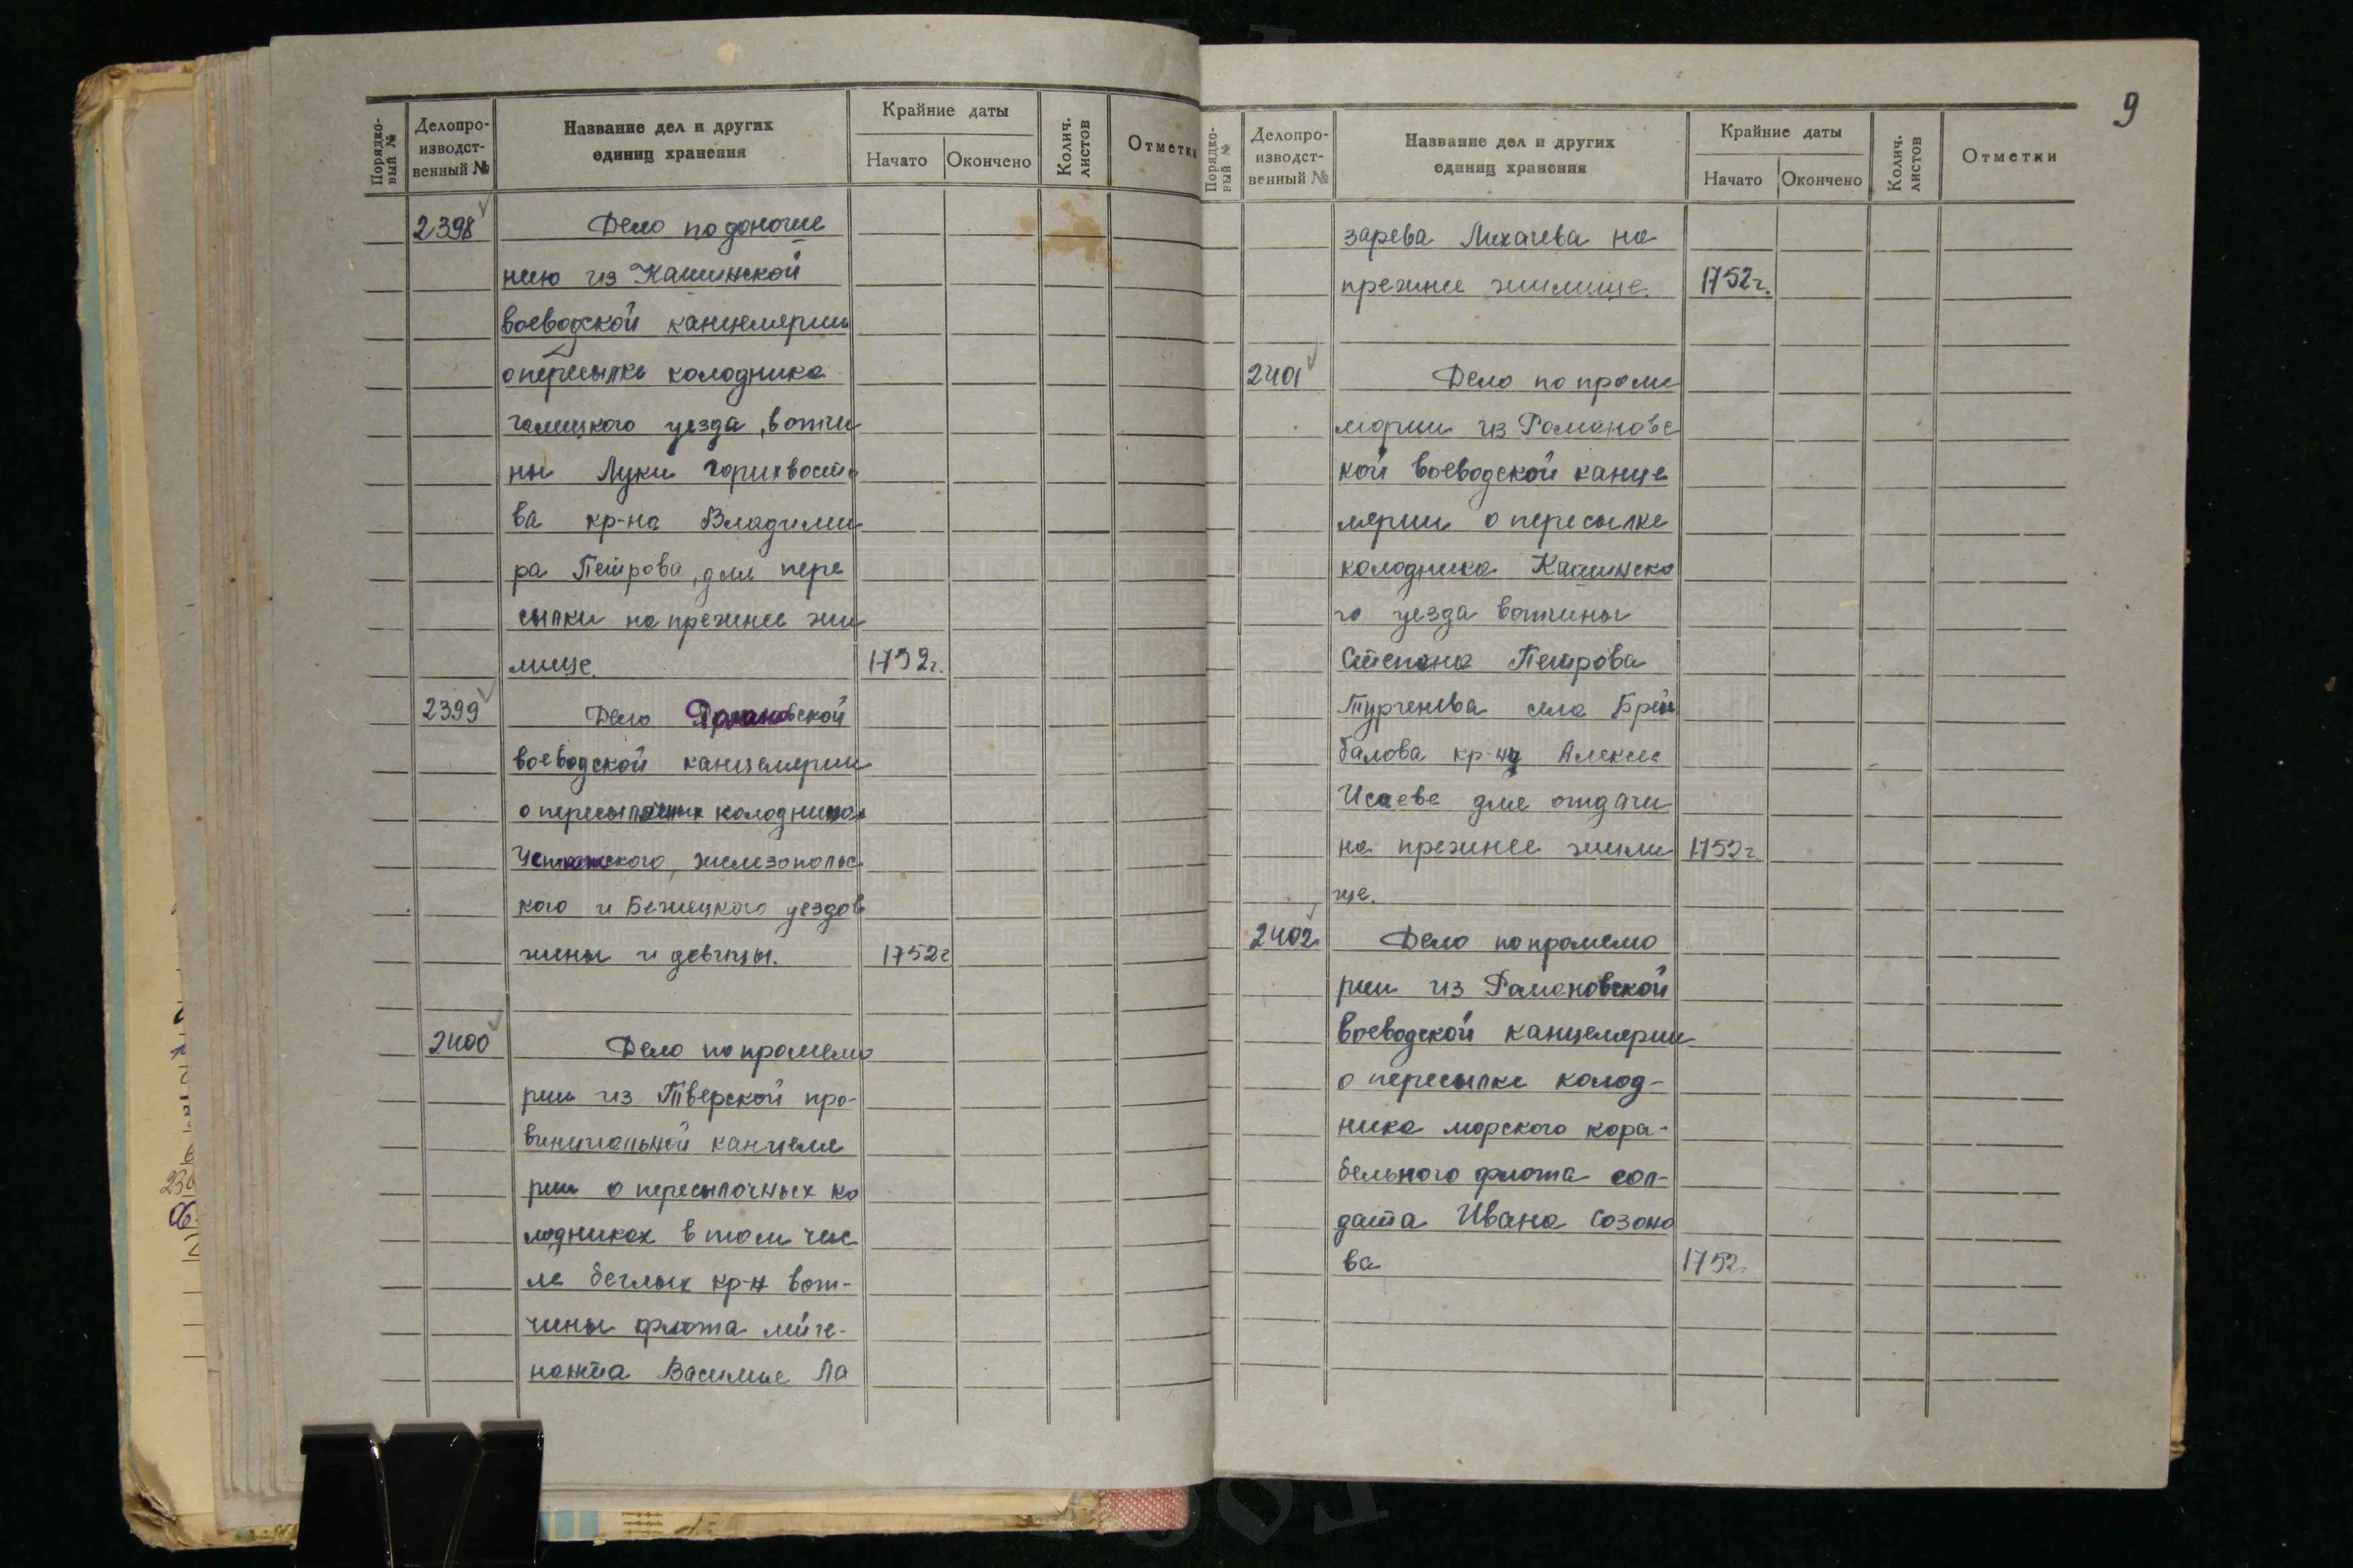 Порядко-
вый №
Делопро-
изводст-
венный №
Название дел и других
единиц хранения
Крайние даты
Начато
Окончено
Колич.
листов
Отметки
2398
Дело по доноше
нию из Кашинской
воеводской канцелярии
о пересылке колодника
галицкого уезда, вотчи
ны Луки Горихвосто
ва кр-на Владими
ра Петрова, для пере
сылки на прежнее жи
лище.
1752г.
2399
Дело Романовской
воеводской канцелярии
о пересылочных колодниках
железопольс
кого и Бежецкого уездов
жены и девицы.
1752г
2400
Дело по промемо
рии из Тверской про-
винциальной канцеля
рии о пересылочных ко
лодниках в том чис
ле беглых кр-н вот-
чины флота лейте-
нанта Василия Ла
9
Порядко-
вый №
Делопро-
изводст-
венный №
Название дел и других
единиц хранения
Крайние даты
Начато
Окончено
Колич.
листов
Отметки
зарева Лихачева на
прежнее жилище.
1752г.
2401
Дело по проме
мории из Романовс
кой воеводской канце
лярии о пересылке
колодника Кашинско
го уезда вотчины
Степана Петрова
Тургенева села Брей
балова кр-на Алексея
Исаева для отдачи
на прежнее жили
1752г.
ще.
2402
Дело по промемо
рии из Романовской
воеводской канцелярии
о пересылке колод-
ника морского кора-
бельного флота сол-
дата Ивана Созоно
ва
1752